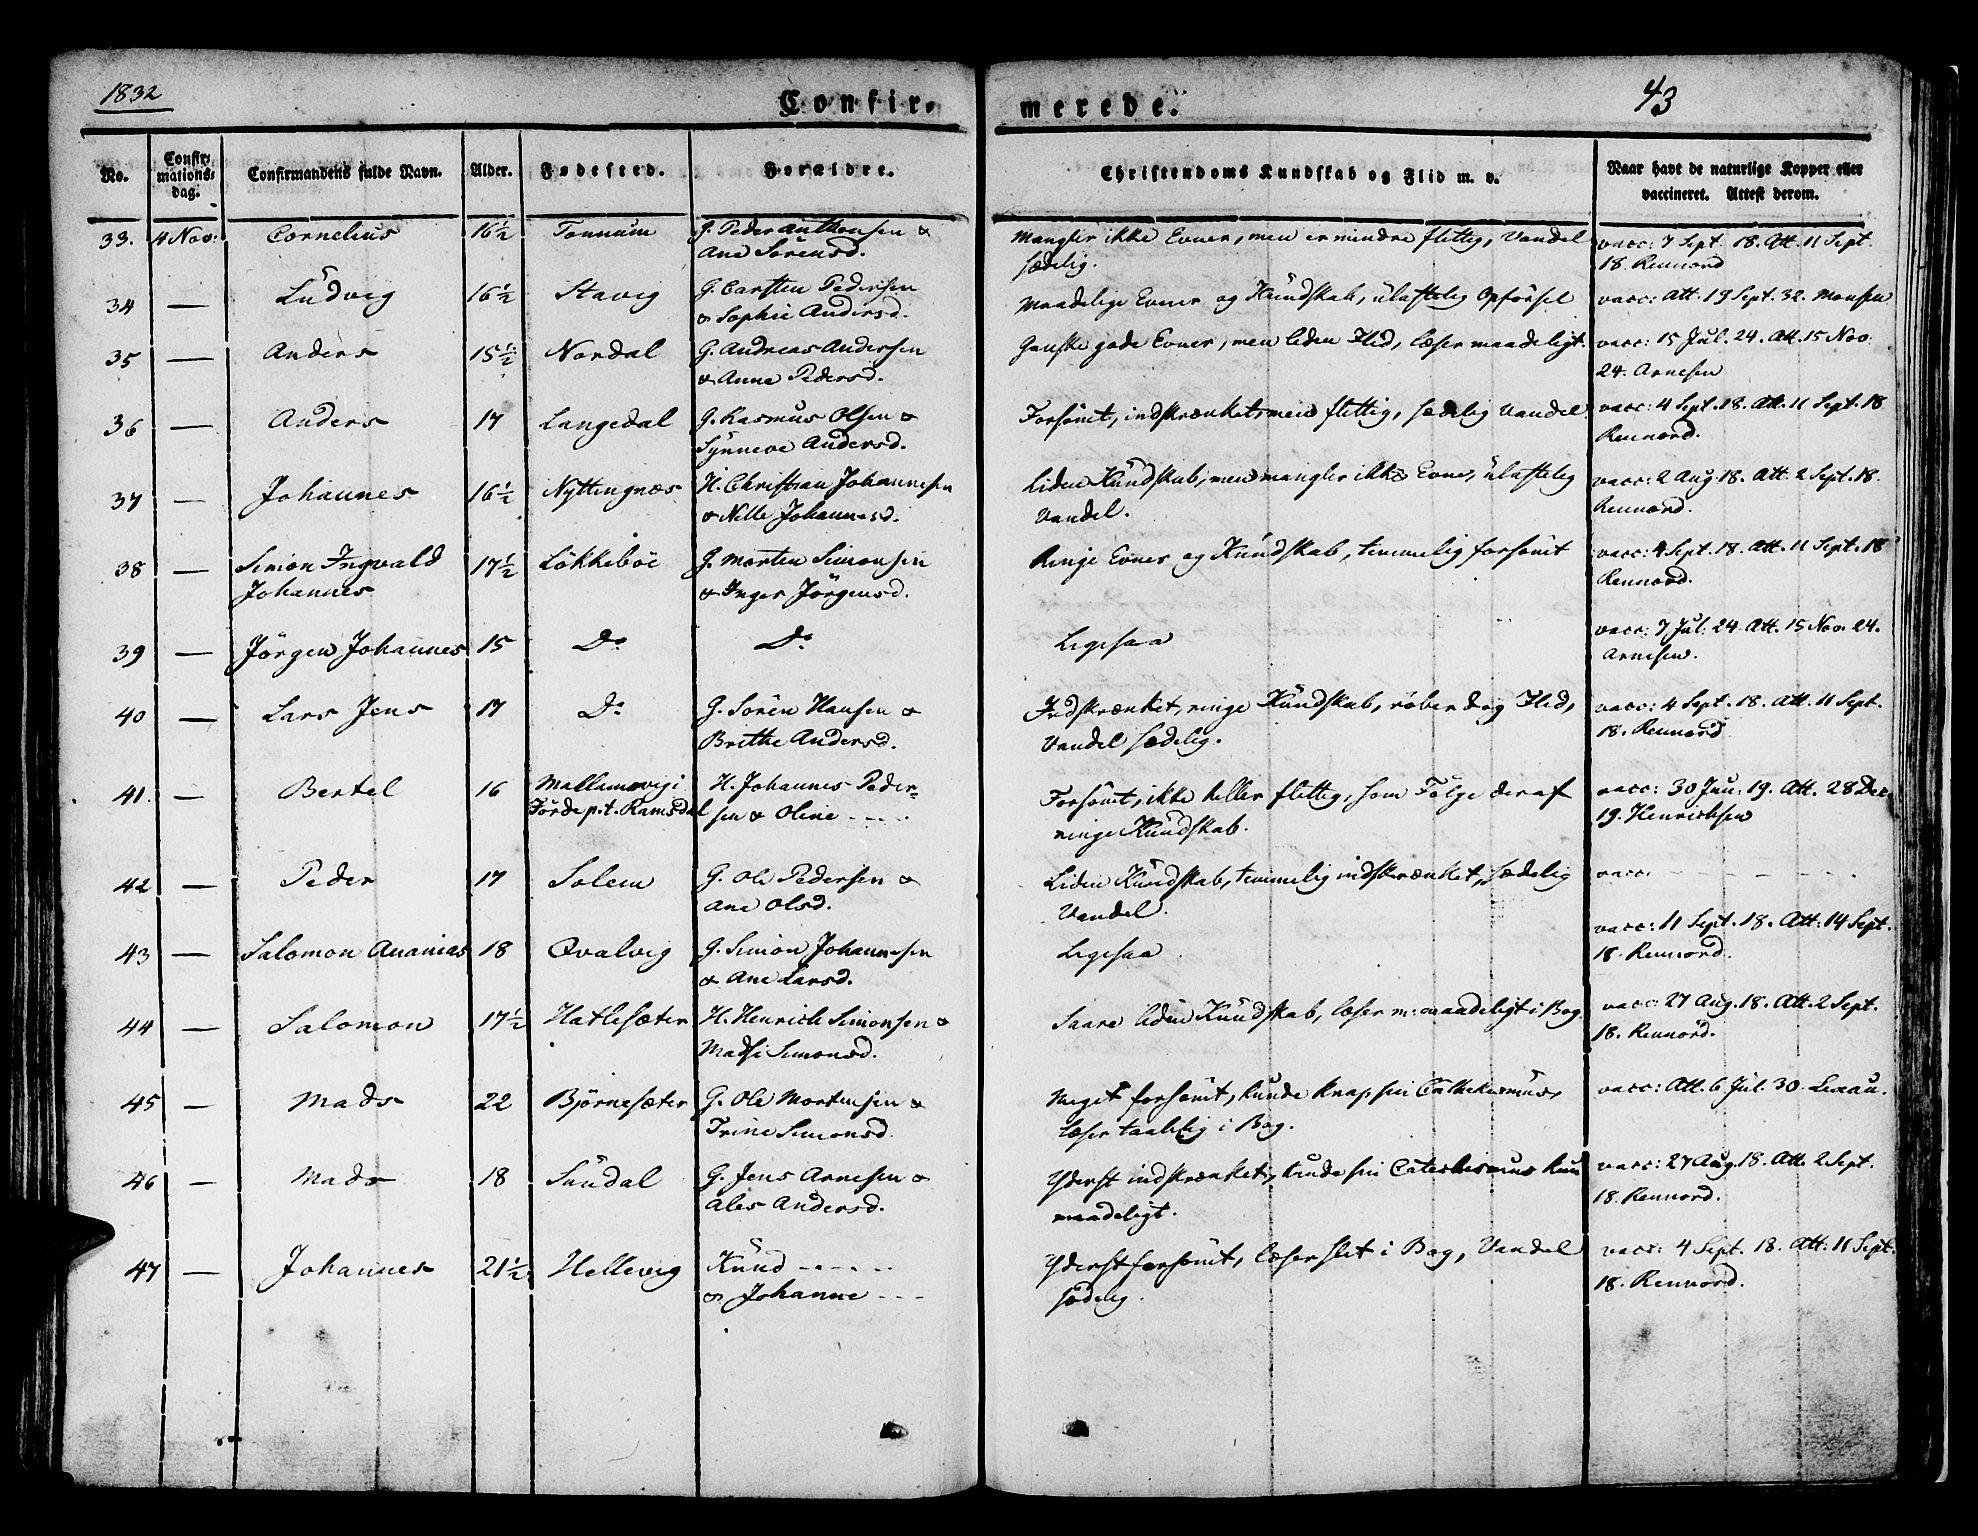 1832
Confir-
merede.
43
No.
Confir-
mations-
dag.
Confirmandens fulde Navn.
Alder.
Fødested.
Forældre.
Christendoms Kundskab og Flid m. v.
Naar havt de naturlige Kopper eller
vaccineret. Attest derom.
33. 4 Nov: Cornelius 16½ Tonnum G. Peder Anthonsen & Mangler ikke Evner, men er mindre flittig, Vandel vacc: 7 Sept. 18. Att. 11 Sept.
Ane Sörensd. sædelig. 18. Rennord
34 — Ludvig 16½ Stavig G. Carsten Pedersen Maadelige Evner og Kundskab, ulastelig Opförsel vacc: Att. 19 Sept. 32. Monsen
& Sophie Andersd.
35 — Anders 15½ Nordal G. Andreas Andersen Ganske gode Evner, men liden Flid, læser maadeligt. vacc: 15 Jul. 24. Att. 15 Nov
& Anne Pedersd. 24. Arnesen
36 — Anders 17 Langedal G. Rasmus Olsen & Forsömt, indskrænket, men flittig, sædelig Vandel vacc: 4 Sept. 18. Att. 11 Sept. 18
Synneve Andersd. Rennord.
37 — Johannes 16½ Nyttingnæs H. Christian Johannesen Liden Kundskab, men mangler ikke Evne, ulastelig vacc: 2 Aug. 18. Att. 2 Sept. 18.
& Nille Johannesd. Vandel. Rennord.
38 — Simon Ingvald 17½ Lökkeböe G. Morten Simonsen Ringe Evner og Kundskab, temmelig forsömt vacc: 4 Sept. 18. Att. 11 Sept. 18
Johannes & Inger Jörgensd. Rennord.
39 — Jörgen Johannes 15 Do Do Ligesaa vacc: 7 Jul: 24. Att. 15 Nov. 24.
Arnesen.
40 — Lars Jens 17 Do G. Sören Hansen & Indskrænket, ringe Kundskab, røber dog Flid, vacc: 4 Sept. 18. Att. 11 Sept.
Brithe Andersd. Vandel sædelig. 18. Rennord
41. — Bertel 16 Mallamsvig i H. Johannes Peder- Forsömt, ikke heller flittig, som Fölge deraf vacc: 30 Jun: 19. Att. 28 Dec
Förde p.t. Ramsdal sen & Oline - - - ringe Kundskab. 19. Henrichsen
42 — Peder 17 Solem G. Ole Pedersen & Liden Kundskab, temmelig indskrænket, sædelig vacc: — — — —
Ane Olsd. Vandel.
43 — Salomon Ananias 18 Qvalvig G. Simon Johannesen Ligesaa vacc: 11 Sept. 18. Att: 14 Sept.
& Ane Larsd. 18. Rennord.
44 — Salomon 17½ Hatlesæter H. Henrich Simonsen & Saare liden Kundskab, læser m: maadeligt i Bog. vacc 27 Aug. 18. Att. 2 Sept.
Madsi Simonsd. 18. Rennord.
45 — Mads 22 Björnesæter G. Ole Mortensen & Meget forsömt, kunde knap sin Cathekismus, vacc: Att. 6 Jul. 30. Lexau.
Trine Simonsd. læser taalelig i Bog.
46 — Mads 18 Sundal G. Jens Arnesen & Yderst indskrænket, kunde sin Catechismus kun vacc: 27 Aug. 18. Att. 2 Sept.
Ales Andersd. maadeligt. 18. Rennord.
47 — Johannes 21½ Hellevig Knud - - - - Yderst forsömt, læser slet i Bog, Vandel vacc: 4 Sept. 18. Att: 11 Sept.
& Johanne - - - sædelig. 18. Rennord.